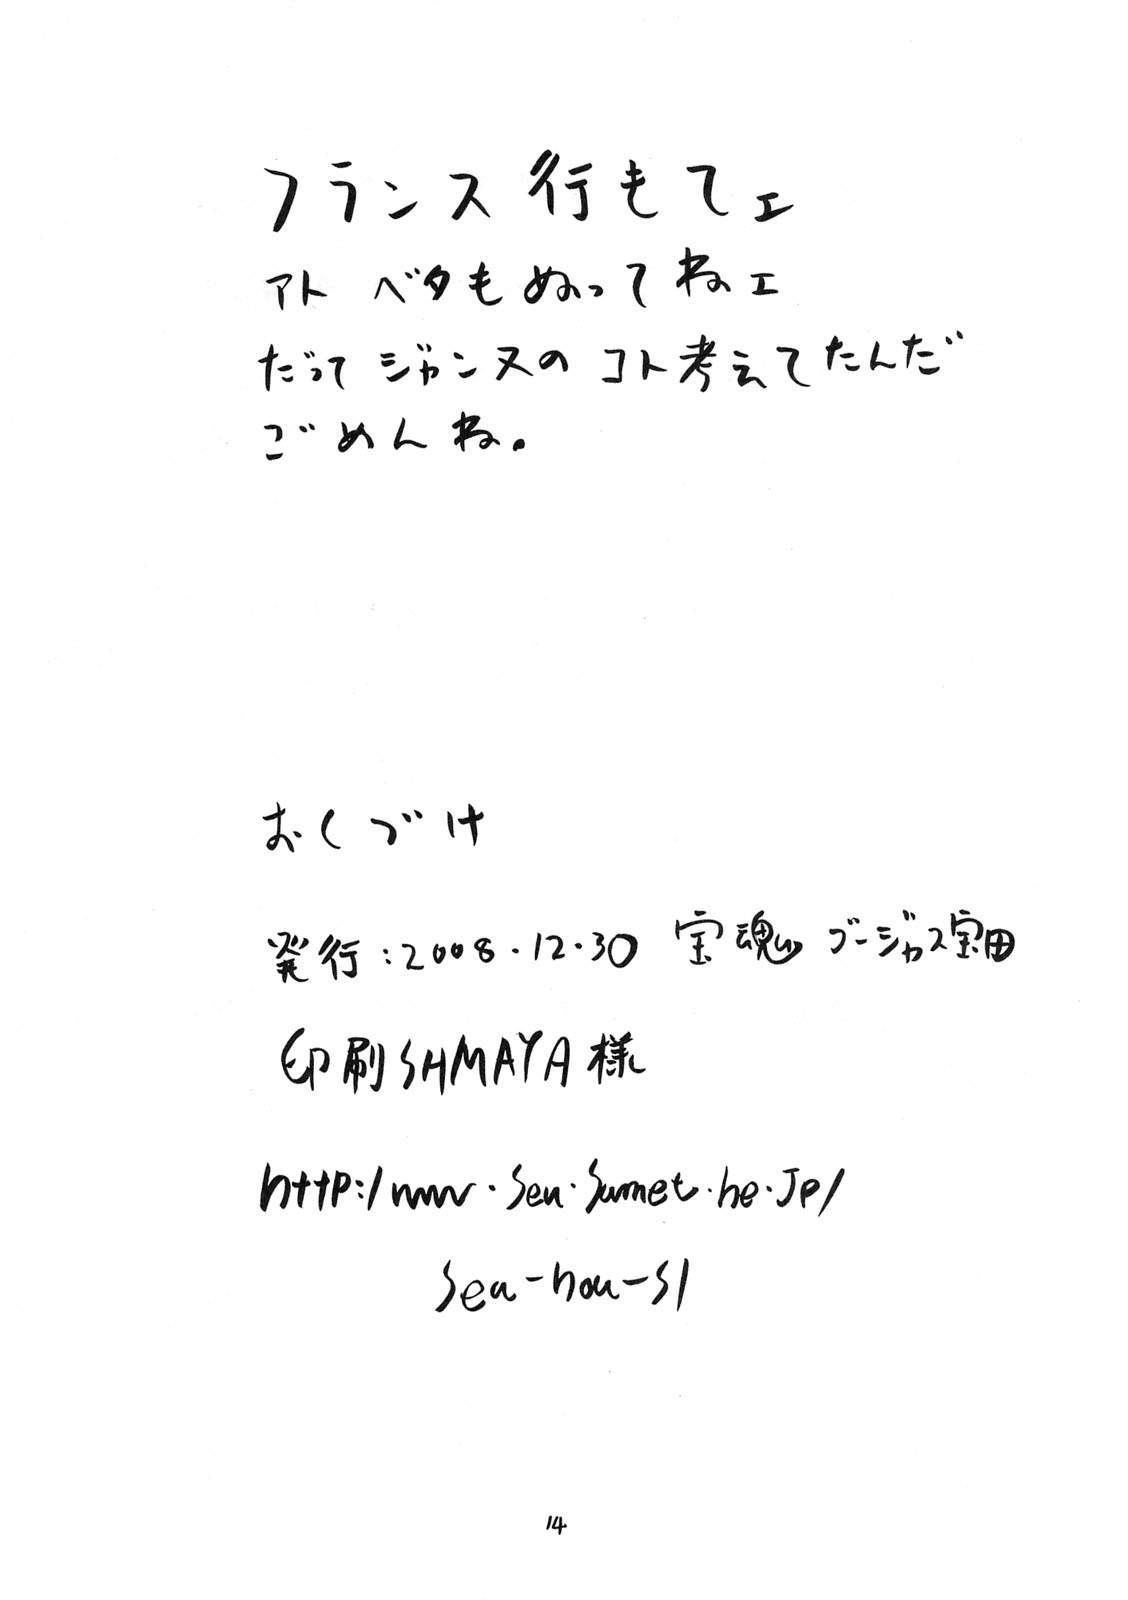 フランス行もてェ
アト ベタもぬってねェ
だって ジャンヌの コト考えてたんだ
ごめんね。
おくづけ
発行:2008.12.30 宝魂 ゴージャス宝田
印刷 SHMAYA様
http:/www.sea.sannet.ne.jp/
sea-hou-s/
14